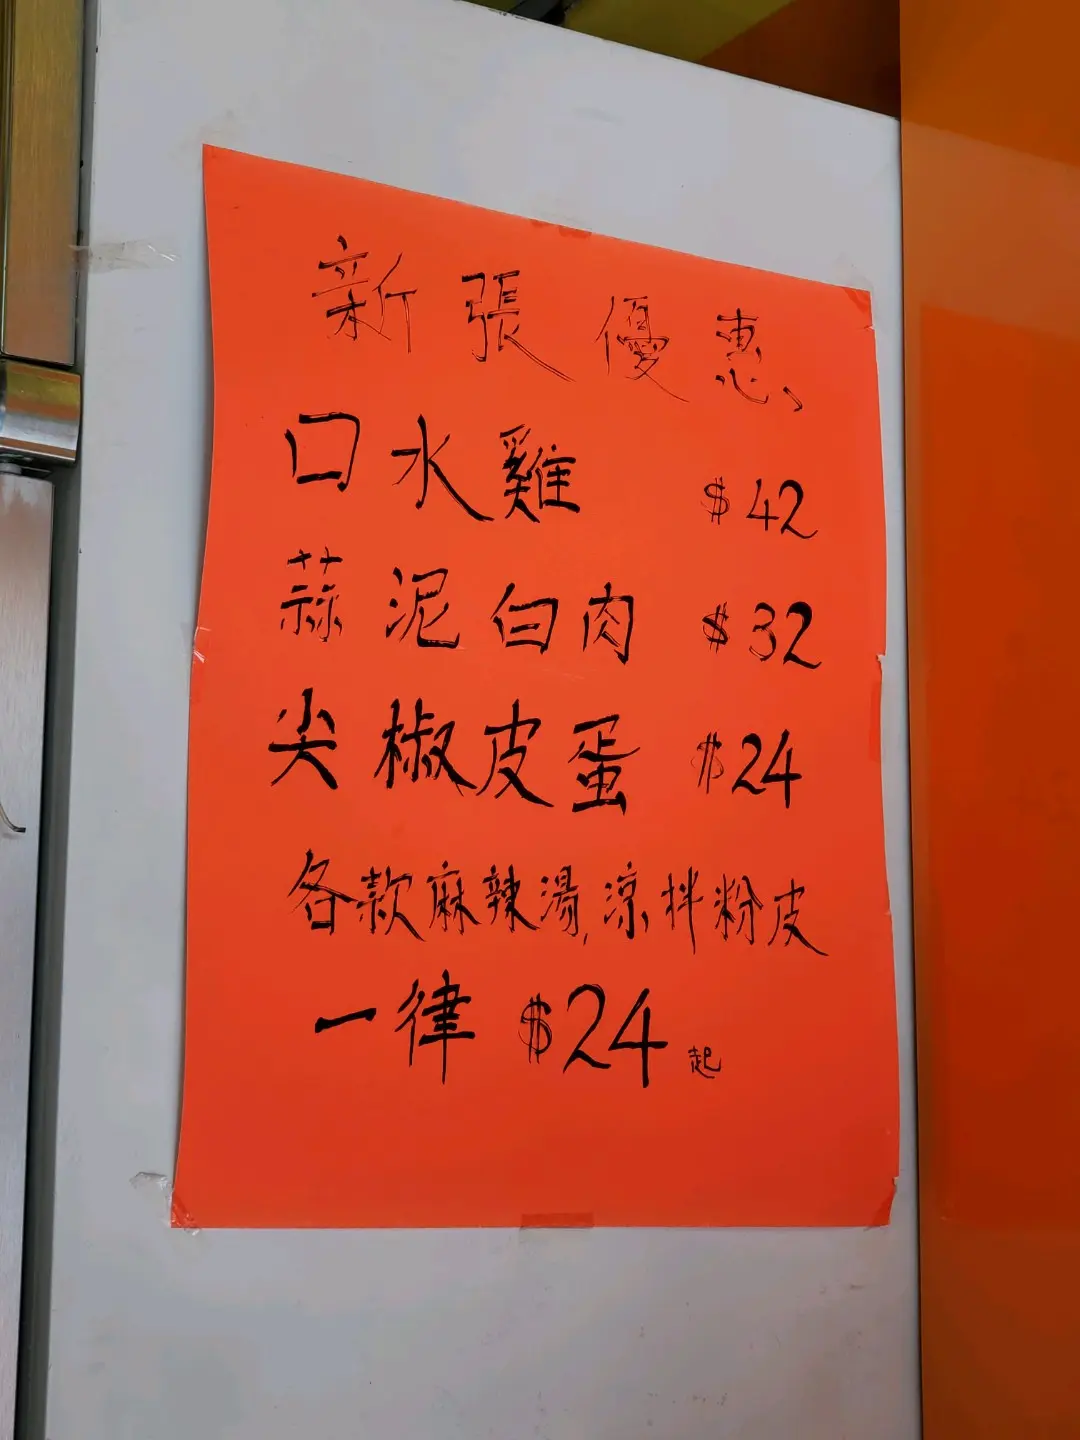 新張優惠、
口水雞 $42
蒜泥白肉 $32
尖椒皮蛋 $24
各款麻辣湯,涼拌粉皮
一律 $24起